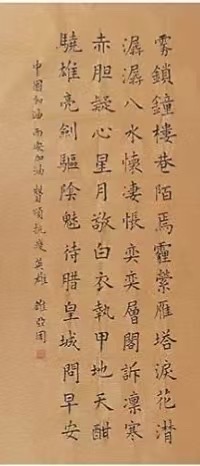 雾鎖鐘樓巷陌焉霾縈雁塔淚花潸
潺潺八水懷凄悵奕奕層閣訴凛寒
赤胆凝心星月敬白衣執甲地天酣
驍雄亮劍驅陰魅待腊皇城問早安
中國加油 西安加油 贊頌抗疫英雄